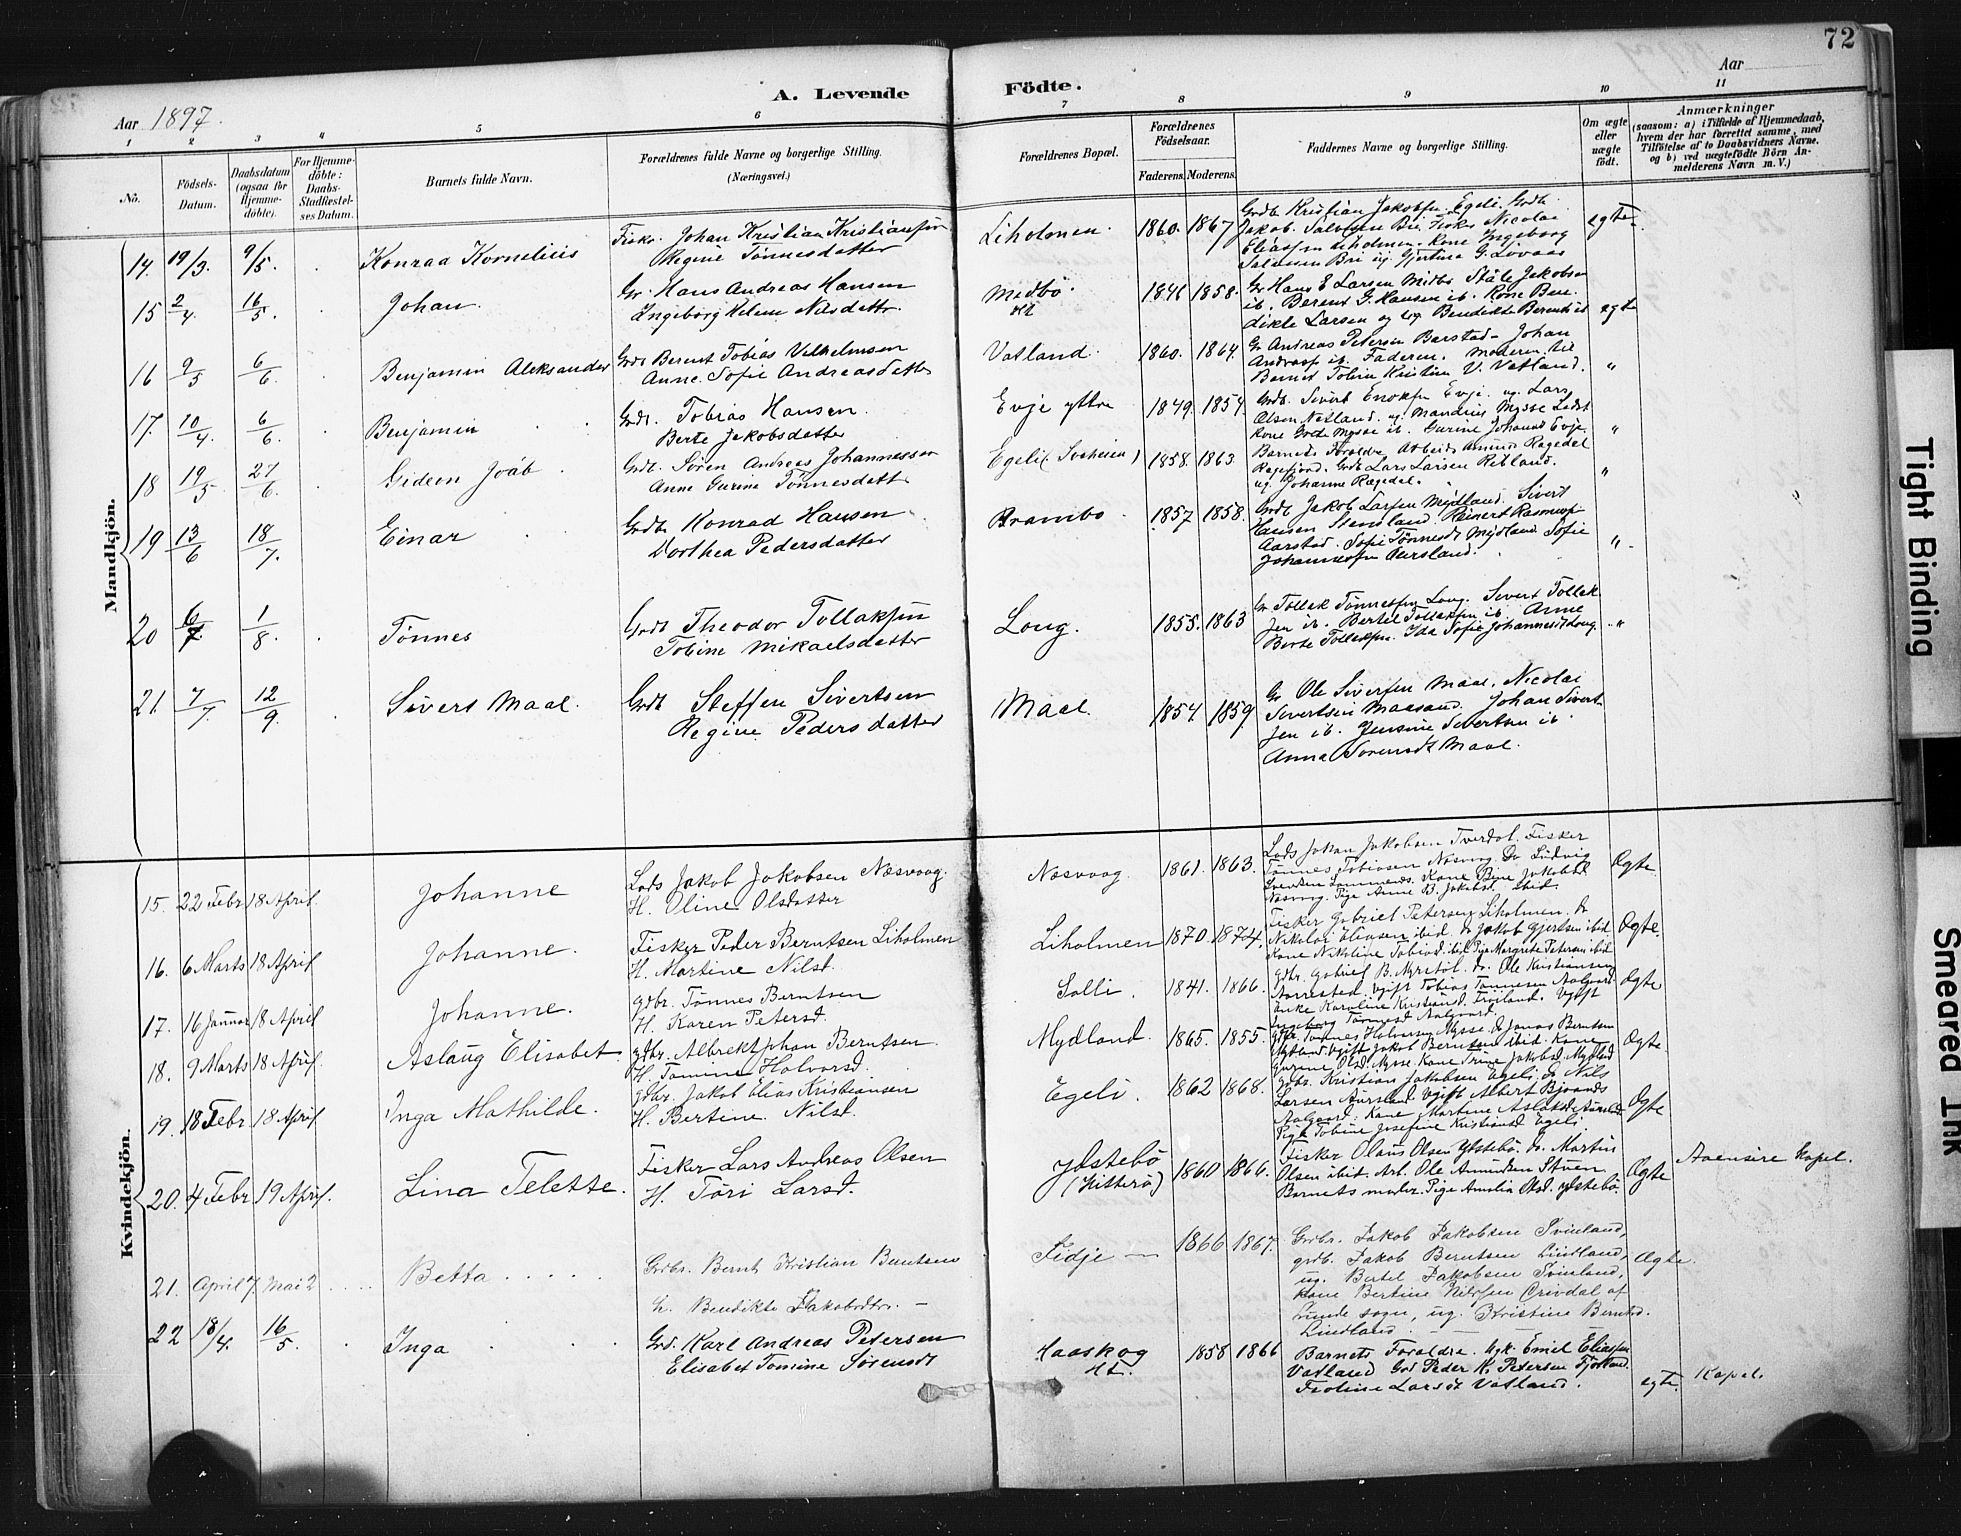 72
Aar 1897.
A. Levende Födte.
Aar
1 2 3 4 5 6 7 8 9 10 11
No.
Födsels-Datum.
Daabsdatum (ogsaa for Hjemme-döbte).
For Hjemme-döbte: Daabs-Stadfæstel-ses Datum.
Barnets fulde Navn.
Forældrenes fulde Navne og borgerlige Stilling.
(Næringsvei.)
Forældrenes Bopæl.
Forældrenes Födselsaar.
Faderens. Moderens.
Faddernes Navne og borgerlige Stilling.
Om ægte eller uægte födt.
Anmærkninger
(saasom: a) i Tilfælde af Hjemmedaab, hvem der har forrettet samme, med Tilföielse af to Daabsvidners Navne. og b) ved uægtefödte Börn An-melderens Navn m. V.)
Mandkjön.
14. 19/3. 9/5. Konrad Kornelius
Fisker. Johan Kristian Kristiansen
Regine Tønnesdatter
Liholmen. 1860. 1867
Grdb Kristian Jakobsen Egeli. Grdb
Jakob Salvesen Bri. Fisker Nicolai
Eliassen Liholmen. Kone Ingeborg
Salvesen Bri ug Gjertine G. Lovaas
egte.
15 2/4. 16/5. Johan.
Gr. Hans Andreas Hansen
Ingeborg Helene Nilsdattr.
Medbø. Ht 1846 1858.
Gr Hans E Larsen Midbø Ståle Jakobsen
ib. Berent G. Hansen ib. Kone Bene
dikte Larsen og ug Bendikte Berents ib
egte
16 9/5 6/6. Benjamin Aleksander
Grdb Berent Tobias Vilhelmsen
Anne Sofie Andreasdatter
Vatland. 1860. 1864.
Gr Andreas Petersen Barstad. Johan
Andreass ib. Faderen. Moderen til
Barnet Tobine Kristine V. Vatland.
"
17. 10/4. 6/6. Benjamin
Grdb. Tobias Hansen.
Berte Jakobsdatter
Evje yttre 1849. 1854.
Grdb. Sivert Enoksen Evje. ug. Lars
Olsen Netland. ug. Mandius Mysse Ladst
Kone Grete Mysse ib. Gurine Johansd Evje.
"
18 19/5 27/6. Gideon Joáb.
Grdb. Søren Andreas Johannessen
Anne Gurine Tønnesdatter
Egeli (Sveheien) 1858. 1863.
Barnets Foraldre. Arbeid. Amund Ragedal
Regefjord. Grdb Lars Larsen Rebland.
ug. Johanne Rægedal.
"
19 13/6 18/7. Einar
Grdb Konrad Hansen
Dorthea Pedersdatter
Brambo. 1857 1858.
Grdb Jakob Larsen Mydland. Sivert
Hansen Stensland. Reinert Rasmuss
Aarstad. Sofie Tønnesdt Mydland Sofie
Johannessen Aursland.
"
20 6/7. 1/8. Tønnes
Grdb Theodor Tollaksen
Tobine Mikaelsdatter
Long. 1855. 1863
Gr Tollak Tønnessen Long. Sivert Tollak
sen ib. Bertel Tollaksen ib. Anne
Berte Tollaksen. Ida Sofie Johannesdt Long.
"
21. 7/7. 12/9. Sivert Maal.
Grdb Steffen Sivertsen
Regine Pedersdatter
Maal. 1854. 1859
Gr Ole Sivertsen Maal. Nicolai
Sivertsen Maasand. Johan Sivert
sen ib. Jensine Sivertsen ib.
Anna Sorensdt Maal.
Kvindekjön.
15. 22 Febr 18 April. Johanne
Lods Jakob Jakobsen Næsvaag.
H. Oline Olsdatter
Næsvaag. 1861. 1863.
Lods Johan Jakobsen Tverdal. Fisker
Tønnes Tobiasen Næsvog. Do Ludvig
Svendsen Sommernes. Kone Bine Jakobsd
Næsvog. Pige Anne B. Jakobsd ibid.
Ægte.
16. 6 Marts 18 April Johanne.
Fisker Peder Berntsen Liholmen
H. Martine Nilsd.
Liholmen 1870. 1874.
Fisker Gabriel Petersen Liholmen. do
Nikolai Eliasen ibid. do Jakob Gjertsen ibid
Kone Nikoline Tobiasd ibid Pige Margrete Petersen ibid
Ægte.
17. 16 Januar 18 April Johanne.
Gdbr. Tønnes Berntsen
H. Karen Petersd.
Solli. 1841. 1866.
Gdbr. Gabriel B. Myrstøl. do. Ole Kristiansen
Aarrestad. Ugift Tobias Tønnesen Aalgaard.
Enke Karoline Kristiansd. Frøiland. Ugift
Ingeborg Tønnesd Aalgaard.
Ægte
18. 9 Marts 18 April Aslaug Elisabet
gdbr. Albrekt Johan Berntsen.
H. Tomine Halvorsd.
Mydland. 1865. 1855.
Gdbr. Tønnes Halvorsen Mysse. do Jonas Berntsen
Mydland. Ugift Jakob Berntsen ibid. Kone
Gurine Olsd. Mysse. Kone Trine Jakobsd. Mydland
Ægte.
19. 18 Febr. 18 April Inga Mathilde.
gdbr. Jakob Elias Kristiansen
H. Bertine Nilsd.
Egeli. 1862 1868.
Gdbr. Kristian Jakobsen Egeli. do Nils
Larsen Aursland. Ugift Albert Bjoands
Aalgaard. Kone Martine Aslaksd Aursland
Pige Tobine Josefine Kristiansd Egeli.
Ægte
20. 4 Febr. 19 April. Lina Telette.
Fisker Lars Andreas Olsen
H. Töri Larsd.
Ydstebö (Hitterö) 1860 1866.
Fisker Olaus Olsen Ydstebö. do. Martin
Olsen ibid. Arb. Ole Amundsen Stuen
Barnets moder. Pige Amalia Olsd. Ydstebö.
Ægte
Aaensire Kapel.
21. April 7. Mai 2 Betta
Grdbr. Bernt Kristian Berntsen
H. Bendikte Jakobsdtr. —
Fidje — 1866 1867.
Grdbr. Jakob Jakobsen Tvinland,
grdb. Jakob Berntsen Lindland,
ug. Bertel Jakobsen Tvinland,
kone Bertine Nilssen Orrdal af
Lunde sogn, ug. Kristine Berntsd.
Lindland —
Ægte.
22 18/4. 16/5. Inga
Grd. Karl Andreas Petersen
Elisabet Tomine Sørensdt
Haaskog Ht. 1858 1866
Barnets Foraldre. Ugk. Emil Eliassen
Vatland Grd Peder K. Petersen Fjotland.
Frøline Larsdt Vatland.
egte.
Kapel.
Tight Binding
Smeared Ink